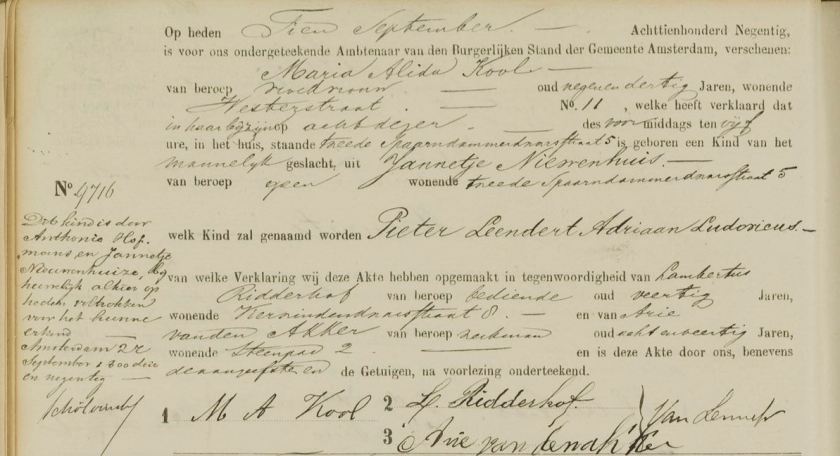 Op heden Tien September. Achttienhonderd Negentig,
is voor ons ondergeteekende Ambtenaar van den Burgerlijken Stand der Gemeente Amsterdam, verschenen:
Maria Alida Kool
van beroep vroedvrouw oud negenendertig Jaren, wonende
Westerstraat. No. 11, welke heeft verklaard dat
in haar bijzijn op acht dezer. des voormiddags ten vijf
ure, in het huis, staande tweede Spaarndammerdwarsstraat 5 is geboren een Kind van het
mannelijk geslacht, uit Jannetje Nieuwenhuis.
van beroep geen wonende tweede Spaarndammerdwarsstraat 5
No 4716
welk Kind zal genaamd worden Pieter Leendert Adriaan Ludovicus
van welke Verklaring wij deze Akte hebben opgemaakt in tegenwoordigheid van Lambertus
Ridderhof van beroep bediende oud veertig Jaren,
wonende straat 8. en van Arie
van den Akker van beroep oud acht en veertig Jaren,
wonende Steenpad 2 en is deze Akte door ons, benevens
de aangeefster en de Getuigen, na voorlezing onderteekend.
Dit kind is door
Anthonie Hof-
mans en Jannetje
Nieuwenhuize, bij
huwelijk alhier op
heden voltrokken
voor het hunne
erkend
Amsterdam 22
September 1800 drie
en negentig
1 M A Kool 2 L. Ridderhof. Van Lennep
3 Arie van den Akker